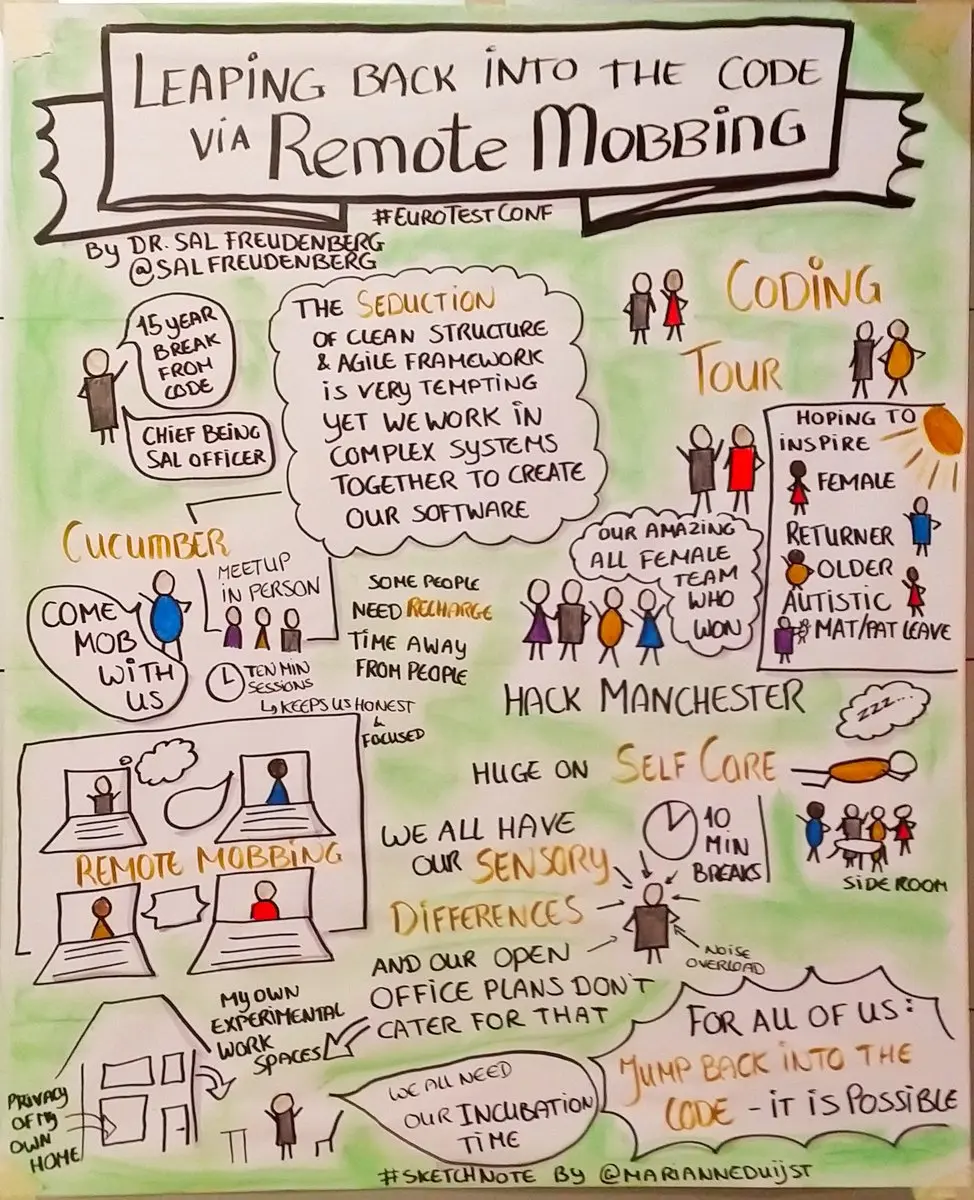 LEAPING BACK INTO THE CODE
VIA Remote MOBBING
#EUROTESTCONF
By DR. SAL FREUDENBERG
@SALFREUDENBERG
15 YEAR
BREAK
FROM
CODE
CHIEF BEING
SAL OFFICER
THE SEDUCTION
OF CLEAN STRUCTURE
& AGILE FRAMEWORK
IS VERY TEMPTING
YET WE WORK IN
COMPLEX SYSTEMS
TOGETHER TO CREATE
OUR SOFTWARE
CODING
TOUR
HOPING TO
INSPIRE
FEMALE
RETURNER
OLDER
AUTISTIC
MAT/PAT LEAVE
CUCUMBER
COME
MOB
WITH
US
MEETUP
IN PERSON
TEN MIN
SESSIONS
KEEPS US HONEST
&
FOCUSED
SOME PEOPLE
NEED RECHARGE
TIME AWAY
FROM PEOPLE
OUR AMAZING
ALL FEMALE
TEAM
WHO
WON
HACK MANCHESTER
ZZZ...
HUGE ON SELF CARE
10
MIN
BREAKS
SIDE ROOM
REMOTE MOBBING
WE ALL HAVE
OUR SENSORY
DIFFERENCES
AND OUR OPEN
OFFICE PLANS DON'T
CATER FOR THAT
NOISE
OVERLOAD
MY OWN
EXPERIMENTAL
WORK
SPACES
PRIVACY
OF MY
OWN
HOME
WE ALL NEED
OUR INCUBATION
TIME
FOR ALL OF US:
JUMP BACK INTO THE
CODE - IT IS POSSIBLE
#SKETCHNOTE BY @MARIANNEDUIJST